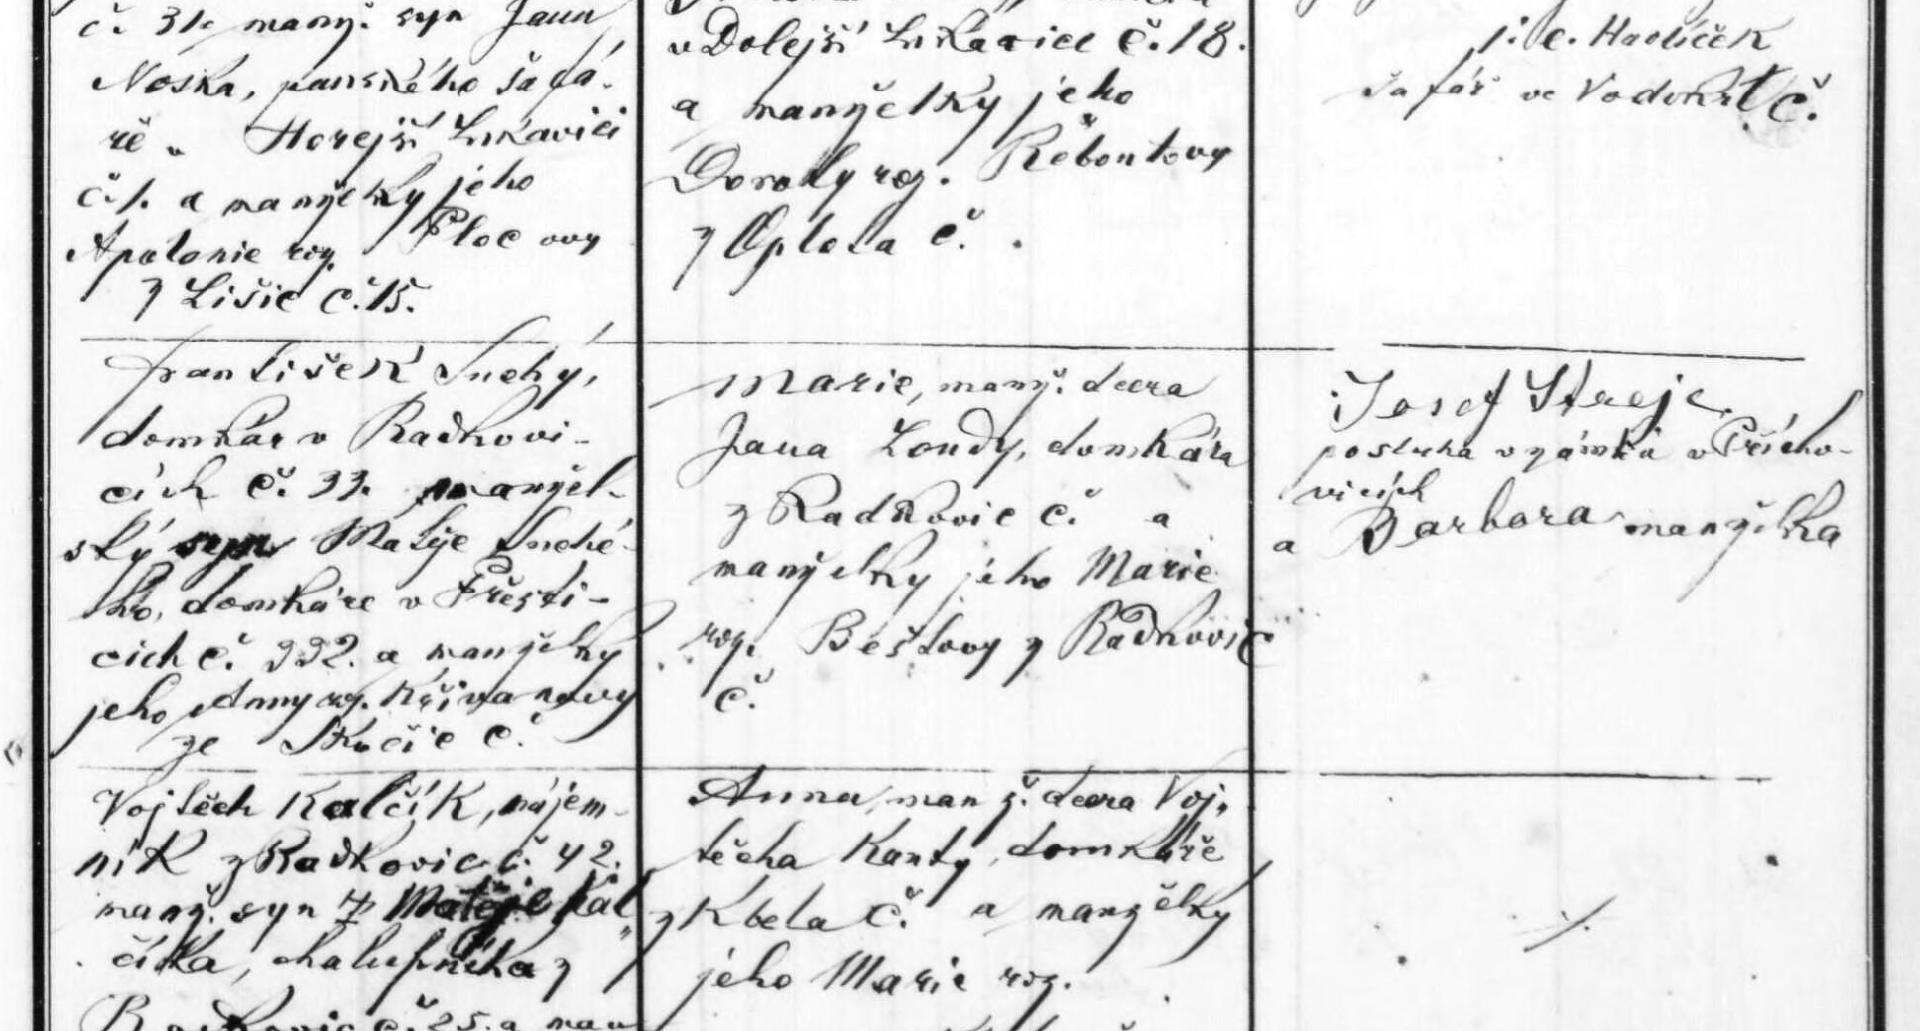 č. 31. manž. syn Jana
Noska, panského šafá-
ře v Horejší Lukavici
č. 1. a manželky jeho
Apolonie roz. Ploc ovy
z Lišic č. 15.
v Dolejší Lukavici č. 18.
a manželky jeho
Doroty roz. Řebontovy
z Oplota č.
j. č. Havlíček
šafář ve Vodokrt č.
František Suchý,
domkář v Radkovi-
cích č. 33. manžel-
ský syn Matěje Suché-
ho, domkáře v Přešti-
cích č. 332. a manželky
jeho Anny roz. Křivanovy
ze Skočic č.
Marie, manž. dcera
Jana Loudy, domkáře
z Radkovic č. a
manželky jeho Marie
roz. Bešlovy z Radkovic
č.
Josef Strejc
posluha v zámku v Přícho-
vicích
a Barbara manželka
Vojtěch Kalčík, nájem-
ník z Radkovic č. 42.
manž. syn Matěje Kal
číka, chalupníka z
Radkovic č. 25. a man
Anna, manž. dcera Voj-
těcha Kanty, domkáře
z Kbela č. a manželky
jeho Marie roz.